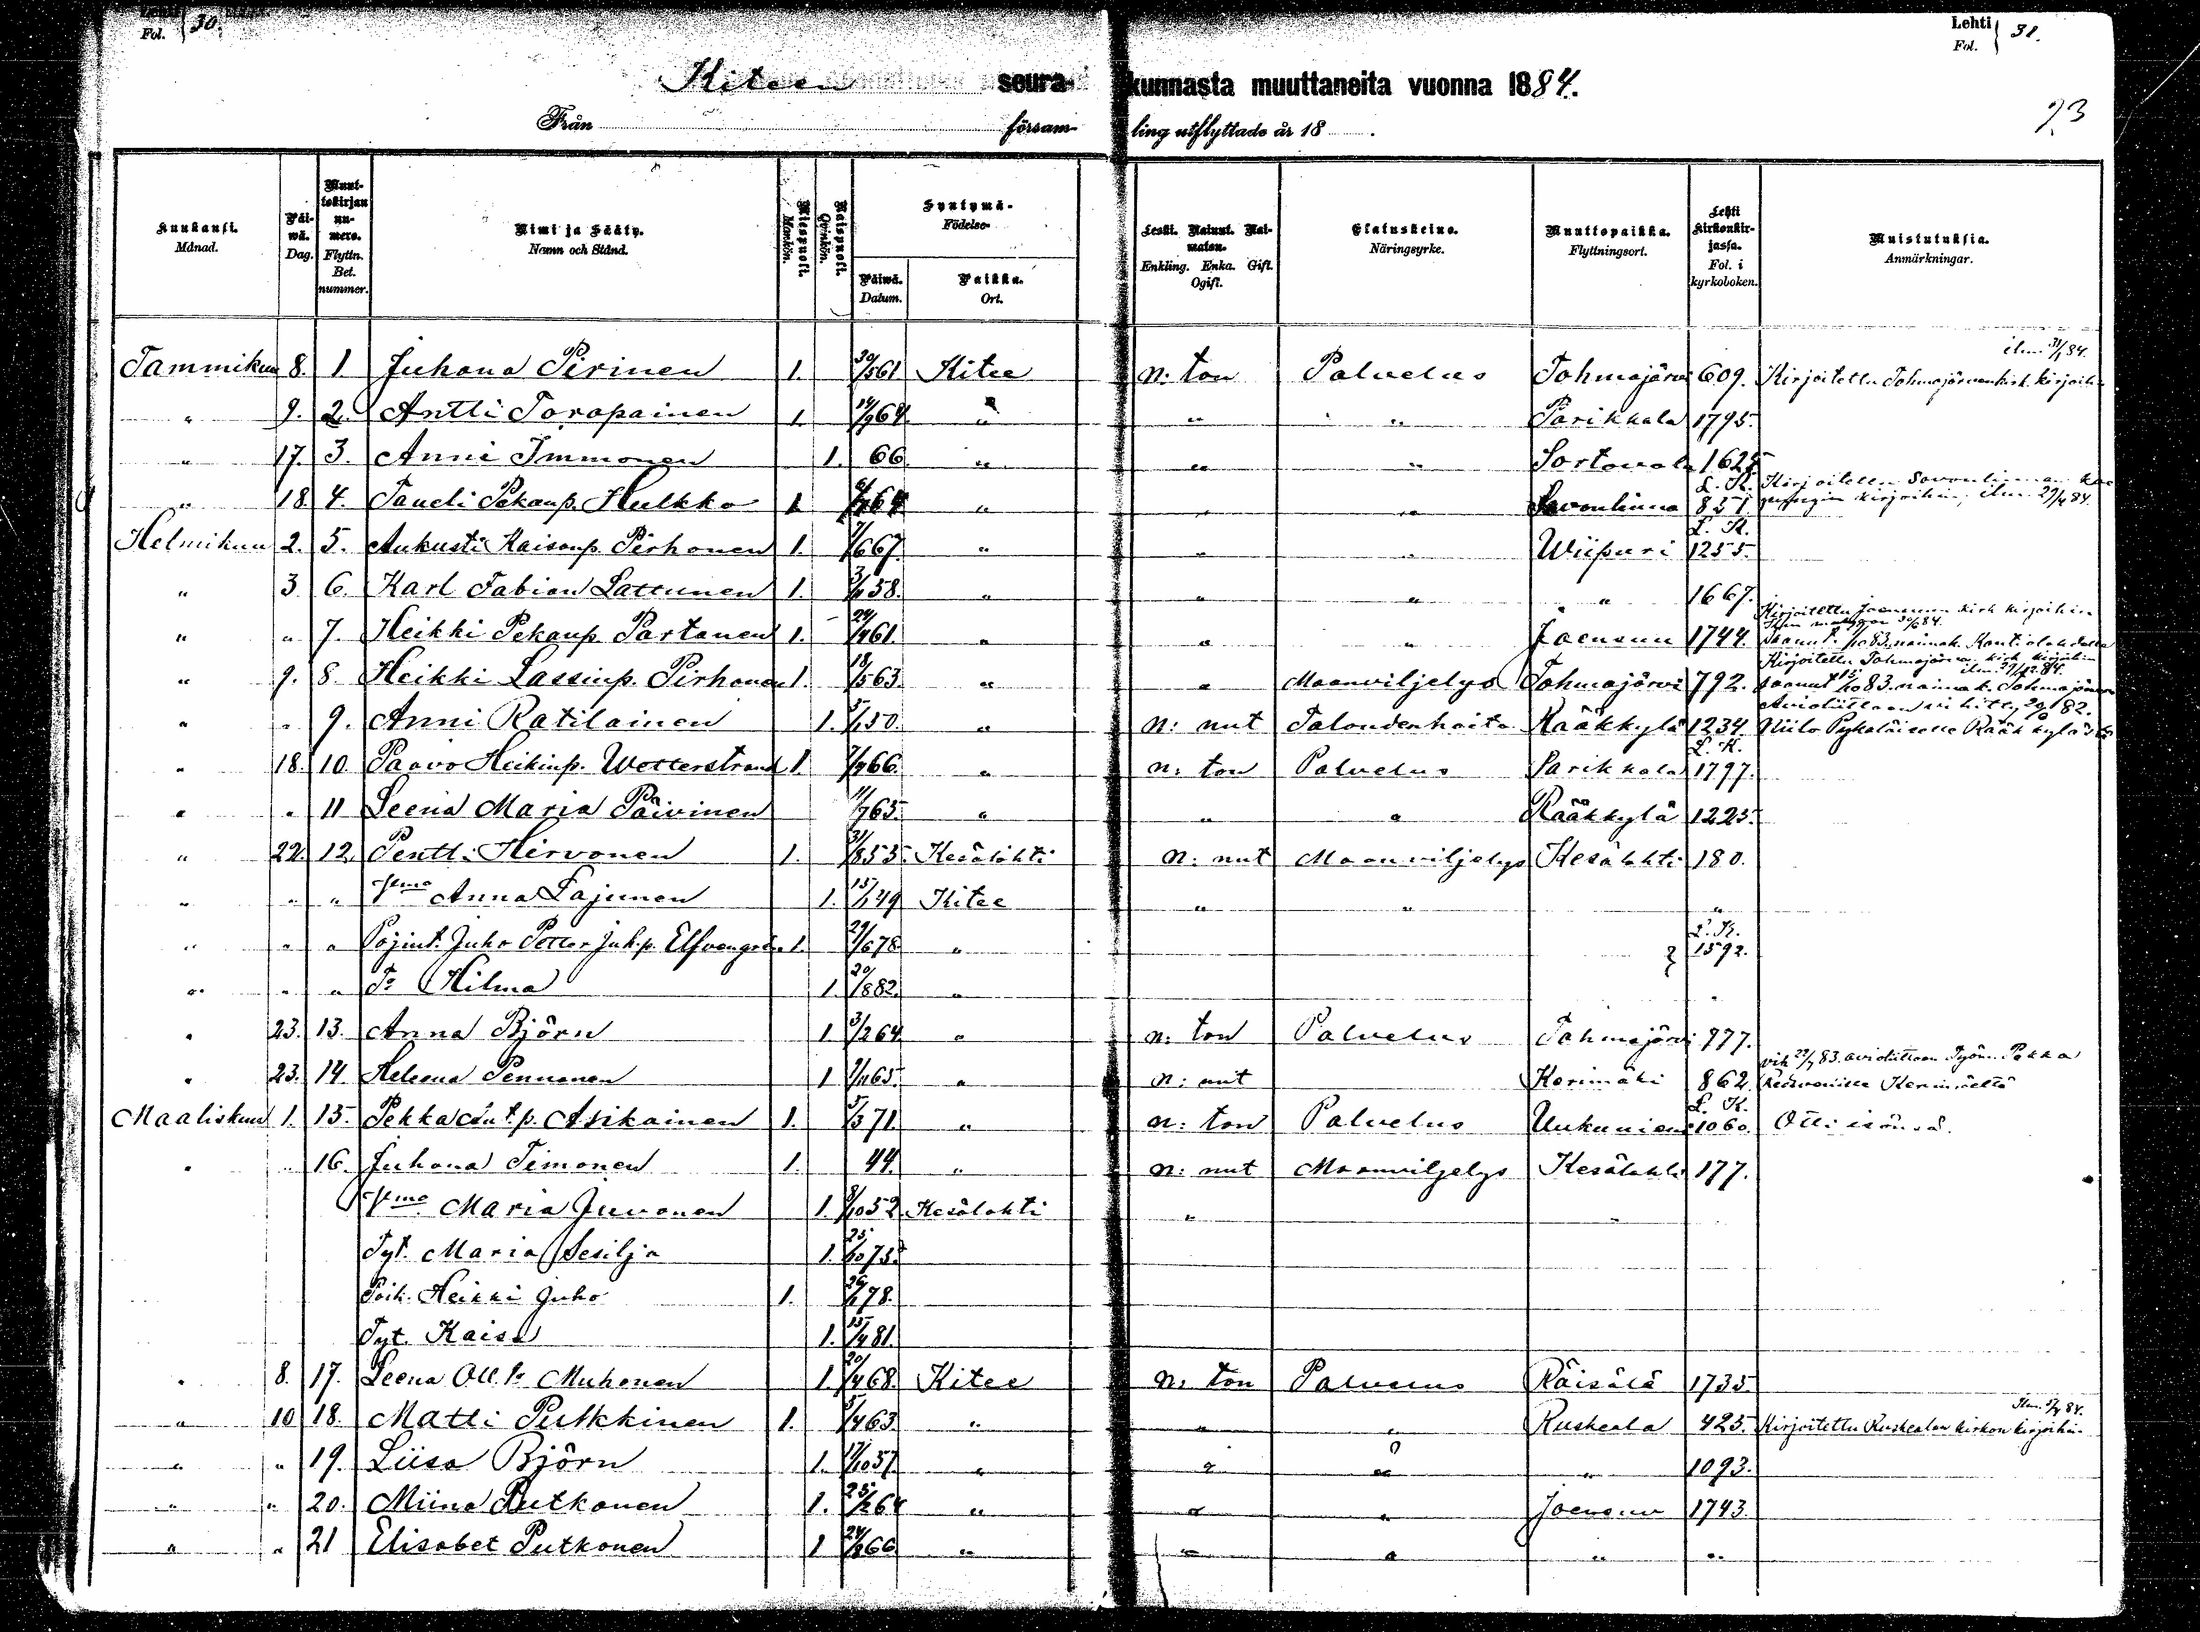 Fol. 30.
Lehti Fol. 31.
Kiteen seura-kunnasta muuttaneita vuonna 1884.
Från försam-ling utflyttade år 18 .
73
Kuukausi. Månad.
Päi-wä. Dag.
Muut-tokirjan nu-mero. Flyttn. Bet. nummer.
Nimi ja Sääty. Namn och Stånd.
Miespuoli. Mankön.
Naispuoli. Qvinkön.
Syntymä- Födelse-
Päiwä. Datum.
Paikka. Ort.
Leski. Nainut. Nai-maton. Enkling. Enka. Gift. Ogift.
Elatuskeino. Näringsyrke.
Muuttopaikka. Flyttningsort.
Lehti kirkonkir-jassa. Fol. i kyrkoboken.
Muistutuksia. Anmärkningar.
ilm. 31/1 84.
Tammikuu 8. 1. Juhana Pirinen 1. 30/5 61 Kitee n: ton Palvelus Tohmajärvi 609. Kirjoitettu Tohmajärven kirk. kirjoihin
" 9. 2. Antti Toropainen 1. 14/9 64 " " " Parikkala 1795.
" 17. 3. Anni Immonen 1. 66 " " " Sortavala 1625
" 18. 4. Taneli Pekanp. Hulkko 1. 64 " " " Savonlinna L. K. 851. Kirjoitettu Savonlinnan kirjoihin, ilm.
Helmikuu 2. 5. Aukusti Kaisanp. Pirhonen 1. 7/6 67. " " " Wiipuri L. K. 1255.
" 3 6. Karl Fabian Lattunen 1. 58. " " " " 1667.
" " 7. Heikki Pekanp. Partanen 1. 24/4 61. " " " Joensuu 1744. Kirjoitettu Joensuun kirk. kirjoihin
" 9. 8. Heikki Lassinp. Pirhonen 1. 18/5 63. " " Maanviljelys Tohmajärvi 792. Kirjoitettu Tohmajärven kirk. kirjoihin
" " 9. Anni Ratilainen 1. 50. " n: nut Talouden hoito Rääkkylä 1234. Niilo Pykäläiselle Rääkkylästä
" 18. 10 Paavo Heikinp. Wetterstrand 1. 66. " n: ton Palvelus Parikkala L. K. 1797.
" " 11 Leena Maria Päivinen 11/7 65. " " " Rääkkylä 1225.
" 22. 12. Pentti Hirvonen 1. 31/8 55. Kesälahti n: nut Maanviljelys Kesälahti 180.
" " " Vmo Anna Lajunen 1. 15/1 49 Kitee " " "
" " " Pojint. Juho Petter Juh.p. Elfvengren 1. 29/6 78 " L. K. 1592.
" " " To Hilma 1. 20/8 82. "
" 23. 13. Anna Björn 1 3/2 64 " n: ton Palvelus Tohmajärvi 777.
" 23. 14. Helena Pennanen 1 65. " n: nut Kerimäki 862
Maaliskuu 1. 15. Pekka Asikainen 1. 5/3 71 " n: ton Palvelus Uukuniemi L. K. 1060. Otti isänsä.
" 16. Juhana Timonen 1. 44. " n: nut Maanviljelys Kesälahti 177.
Vmo Maria Juvonen 1. 8/10 52 Kesälahti "
Tyt. Maria Sesilja 1. 25/10 75.
Poik. Heikki Juho 1. 78.
Tyt. Kaisa 1. 15/4 81.
" 8. 17. Leena Oll. tr Muhonen 1. 20/4 68. Kitee n: ton Palvelus Räisälä 1735.
" 10 18. Matti Putkkinen 1. 5/4 63 " " " Ruskeala 425. Kirjoitettu Ruskealan kirkon kirjoihin.
" " 19. Liisa Björn 1. 17/10 57. " " " " 1093.
" " 20. Miina Putkonen 1. 25/2 64 " " " Joensuu 1743.
" " 21 Elisabet Putkonen 1 24/8 66 " " " " "